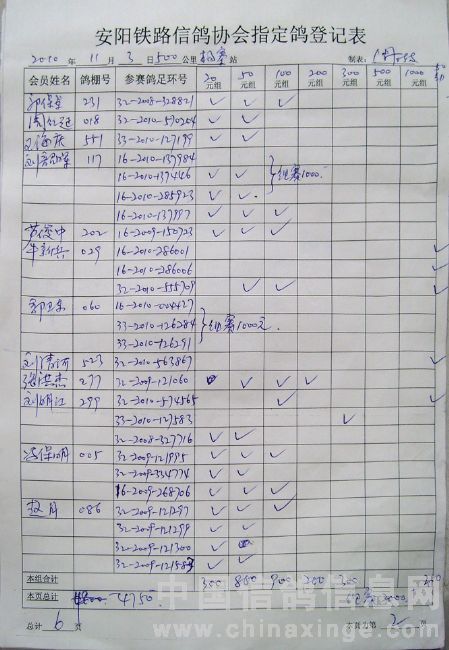 安阳铁路信鸽协会指定鸽登记表
2010 年 11 月 3 日 500 公里 站 制表:
会员姓名 鸽棚号 参赛鸽足环号 20元组 50元组 100元组 200元组 300元组 500元组 1000元组
231 32-2008-328821 ✓ ✓ ✓
018 32-2010-570204 ✓ ✓
551 33-2010-127199 ✓ ✓
117 16-2010-137984
16-2010-137446 组赛1000.
16-2010-285923 ✓ ✓
16-2010-137997 ✓ ✓ ✓
苏俊中 202 16-2009-150723 ✓ ✓ ✓
牛新兵 029 16-2010-286001 ✓
16-2010-286006 ✓
32-2010-555709 ✓ ✓ ✓
郭卫东 060 16-2010-004427
33-2010-126284 组赛1000元.
33-2010-126291
523 32-2010-563867 ✓
张洪杰 277 32-2009-121060 ✓ ✓ ✓
刘明江 299 32-2010-574565 ✓ ✓
33-2010-127583 ✓
32-2008-327716 ✓ ✓
冯保明 005 32-2009-121995 ✓ ✓ ✓
32-2009-334774 ✓ ✓
16-2009-268706 ✓ ✓ ✓
赵月 086 32-2009-121297 ✓ ✓ ✓
32-2009-121299 ✓ ✓
32-2009-121300 ✓
32-2009-121583 ✓ ✓
本组合计 300 800 900 200 300
本页总计 4750
总计 6 页 本页为第 2 页
中国信鸽信息网
www.chinaxinge.com